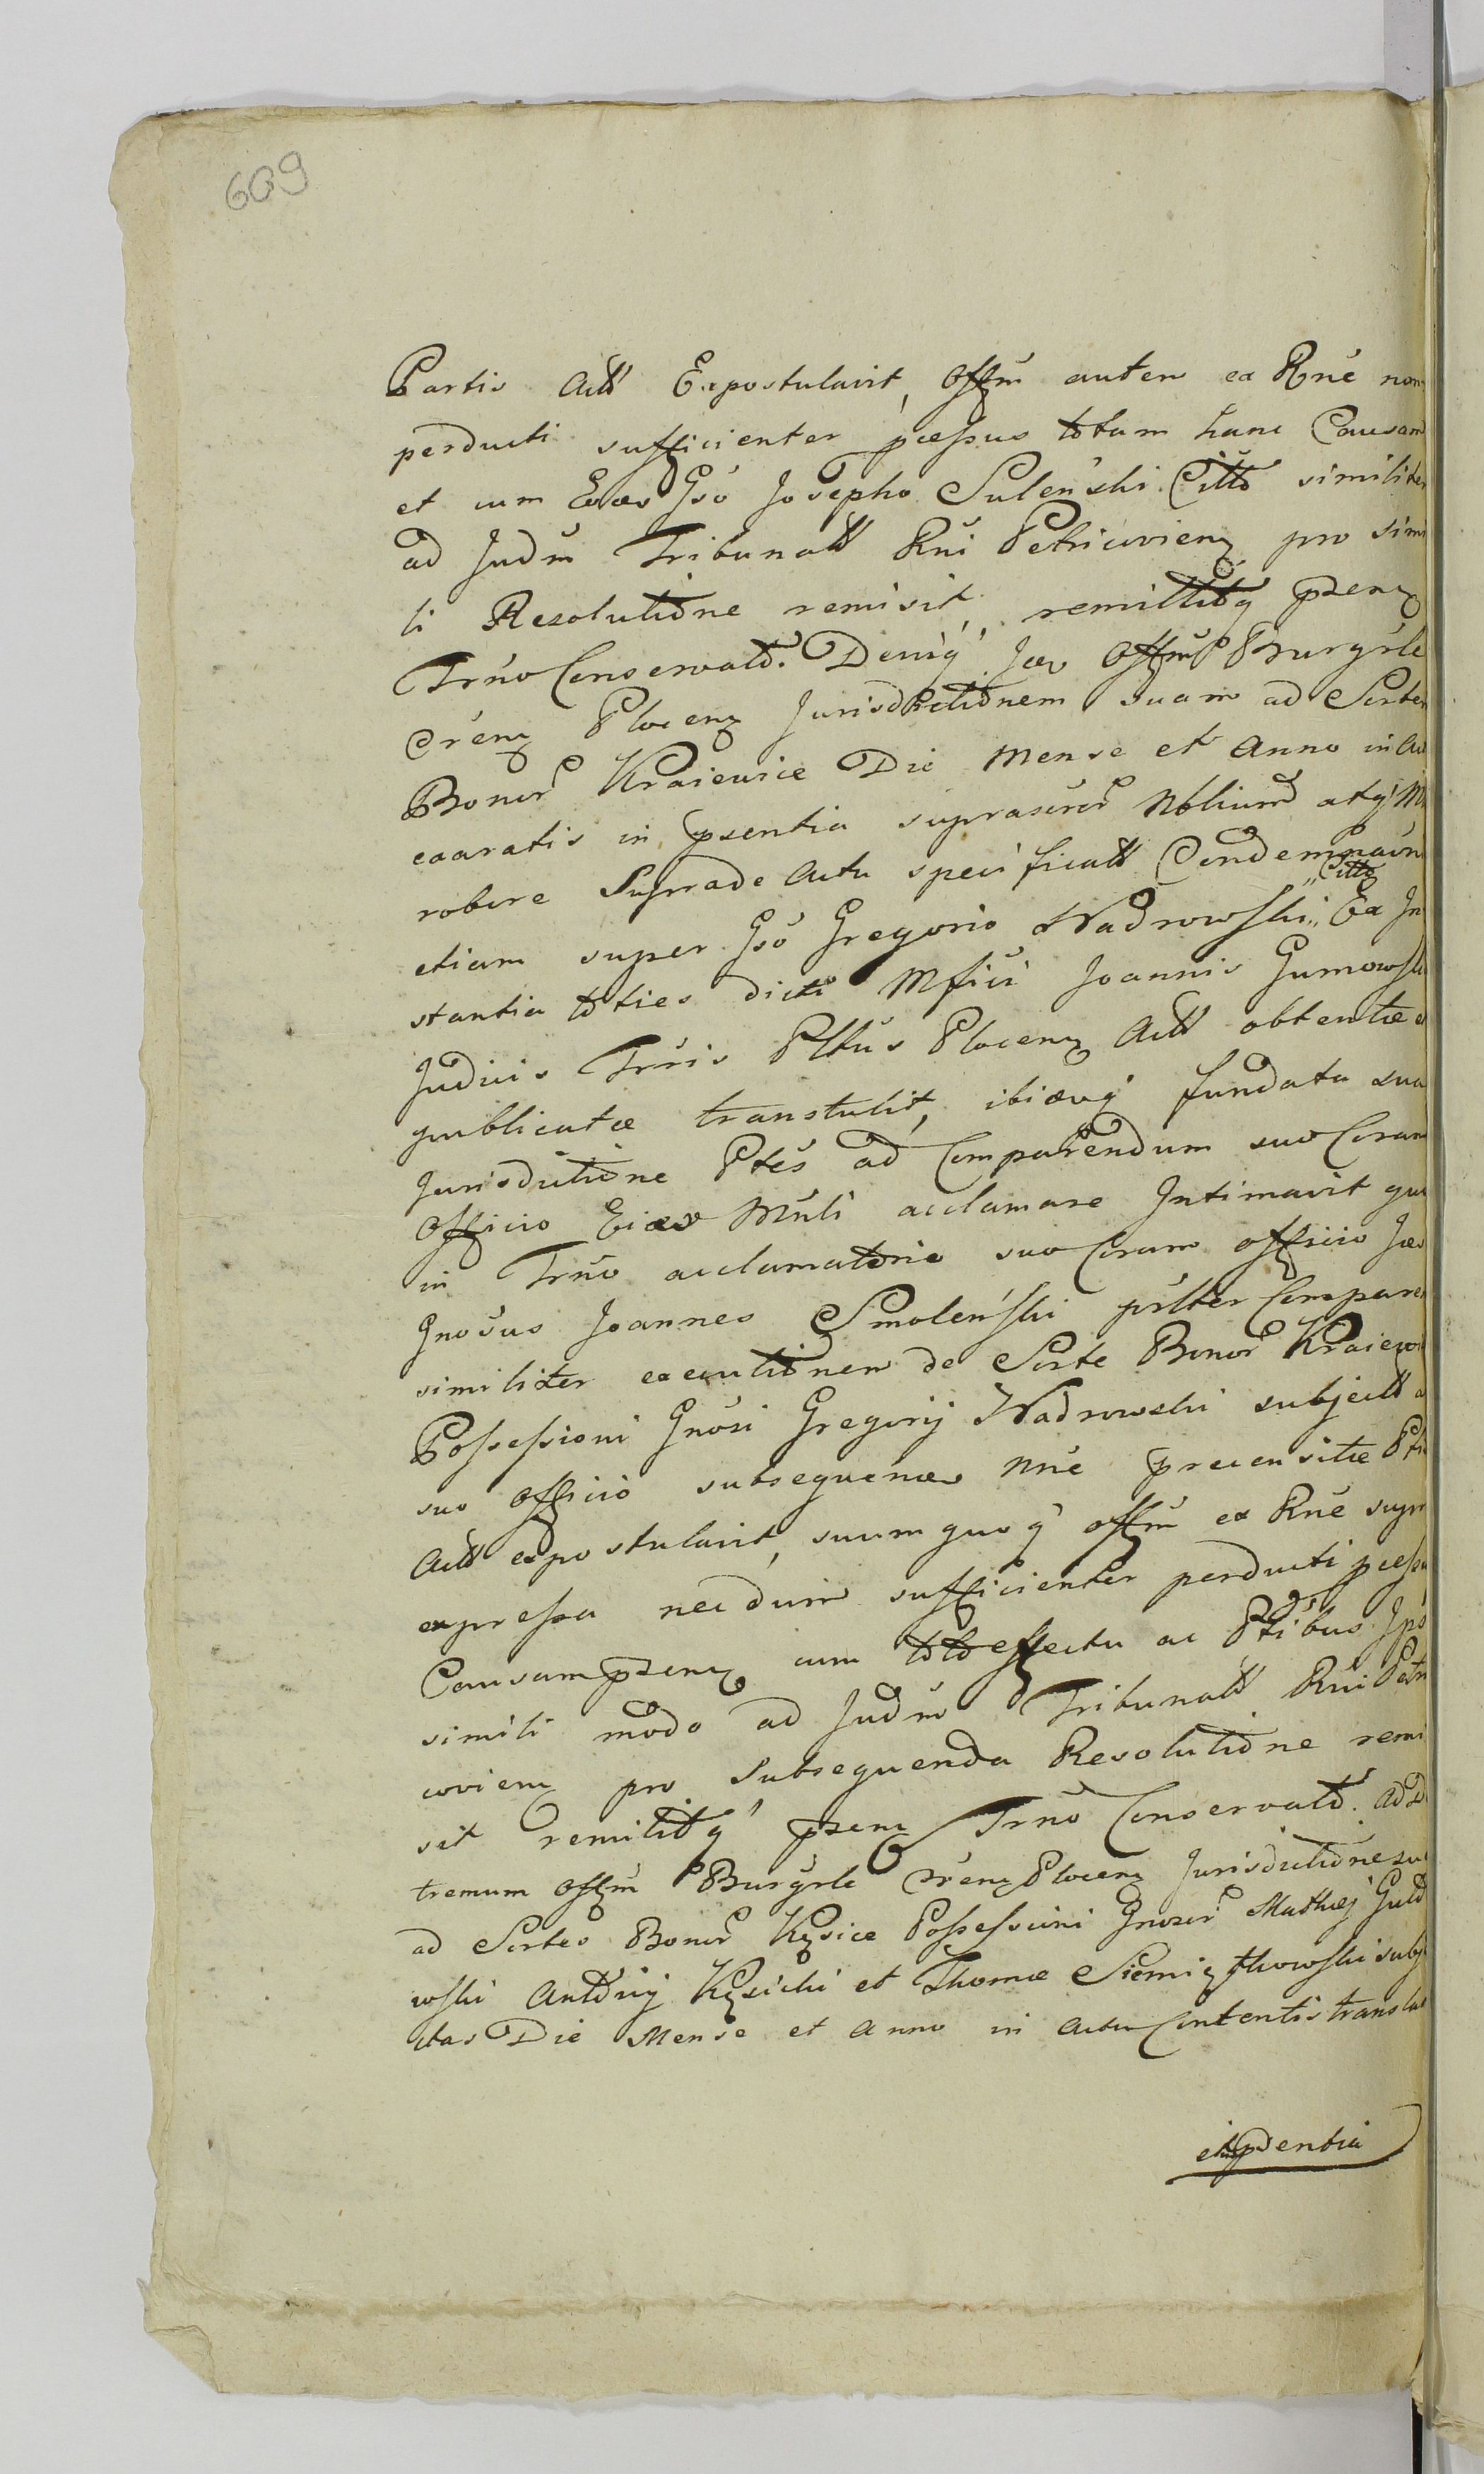 609
Partis Actt Expostulavit, Offm autem ex Rne non
perducti sufficienter pcessus totam hanc Causam
et cum Eodem Gso Josepho Suleński Citto similiter
ad Judm Tribunatt Rni Petricovien pro simi
li Resolutione remisit, remittitq psen
Trno Conservato. Deniq Offm Burgrle
Cren Plocen Jurisdictionem suam ad Sortem
Bonor Kraiewice Die Mense et Anno in Act
exaratis in psentia suprascr Nblium atq Mi
robore Suprade Actu specificatt Condemnaōn
Citto
etiam super Gso Gregorio Nadrowski Ex In
stantia toties dicti Mfici Joannis Gumowski
Judicis Trris Pltus Plocen Actt obtentæ
publicatæ transtulit, ibidemq fundata sua
Jurisdictione Ptes ad Comparendum suo Coram
Officio Minli acclamare Intimavit
in Trno acclamatorio suo Coram officio
Gnosus Joannes Smoleński prlter Comparen
similiter executionem de Sorte Bonor Kraiewi
Possessioni Gnosi Gregorij Nadrowski subjectt
suo Officio subsequenem Nne precensitæ Ptis
Actt expostulavit, suumquoq offm ex Rne supra
expressa necdum sufficienter perducti pcessu
Causam psen cum toto effectu ac Ptibus Ips
simili modo ad Judm Tribunatt Rni Petri
covien pro Subsequenda Resolutione remi
sit remittitq psen Trno Conservato. Adex
tremum Offm Burgrle Cren Plocen Jurisdictione su
ad Sortes Bonor Kęsice Possessioni Gnosor Mathæj Guld
wski Antonij Kęsicki et Thomæ Siemiątkowski subje
ctas Die Mense et Anno in Actu Contentis translat